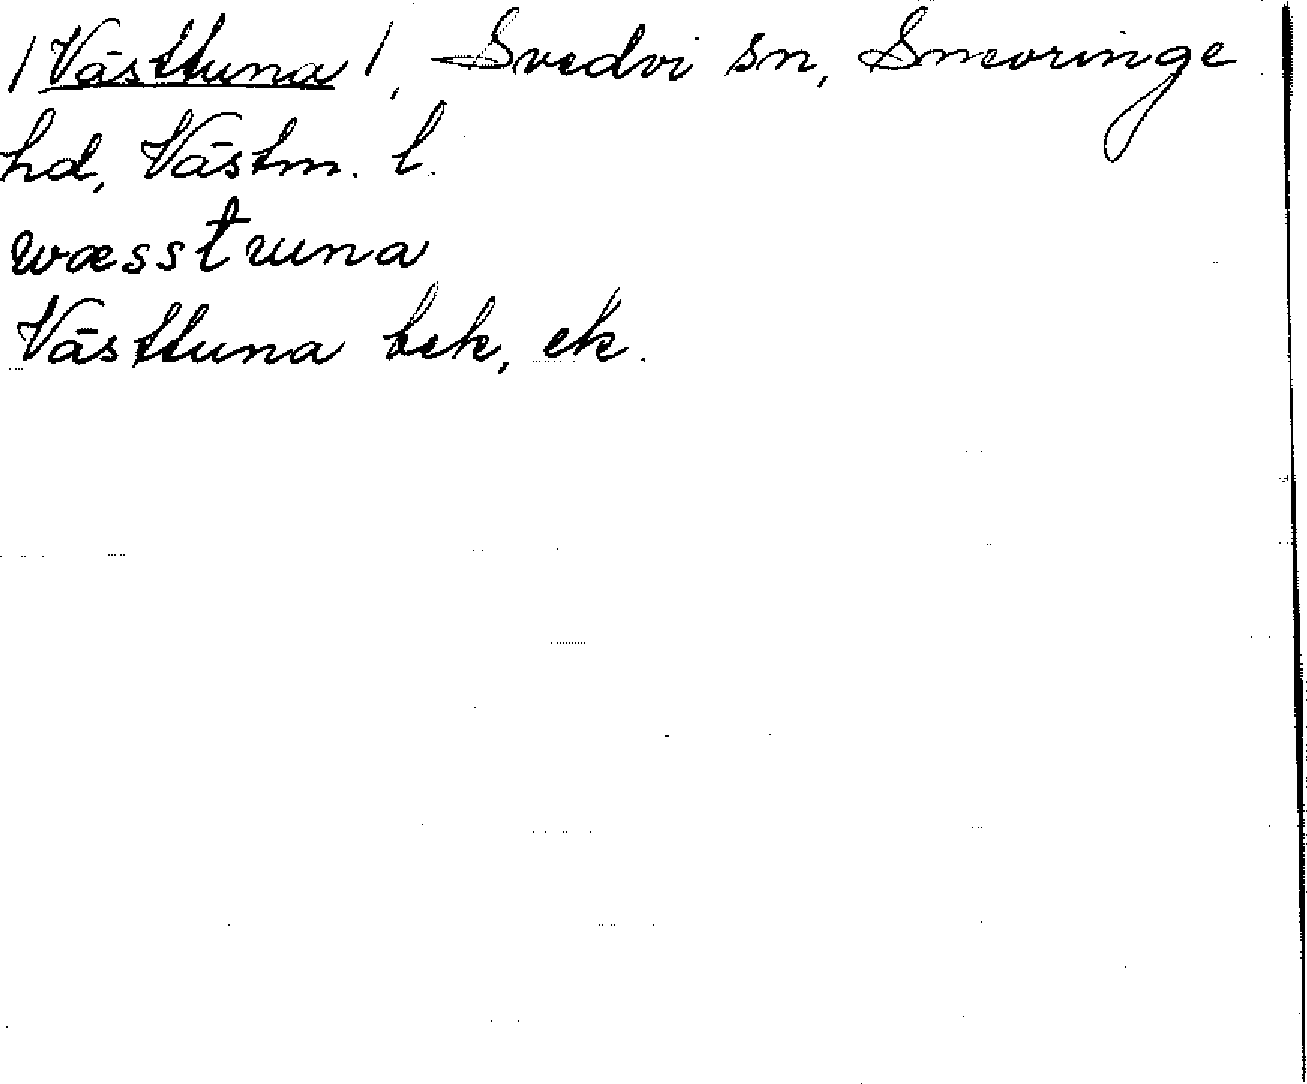 /Västtuna/, Svedvi sn, Snevringe
hd, Västm. l.
wæsstuna
Västtuna bek, ek.